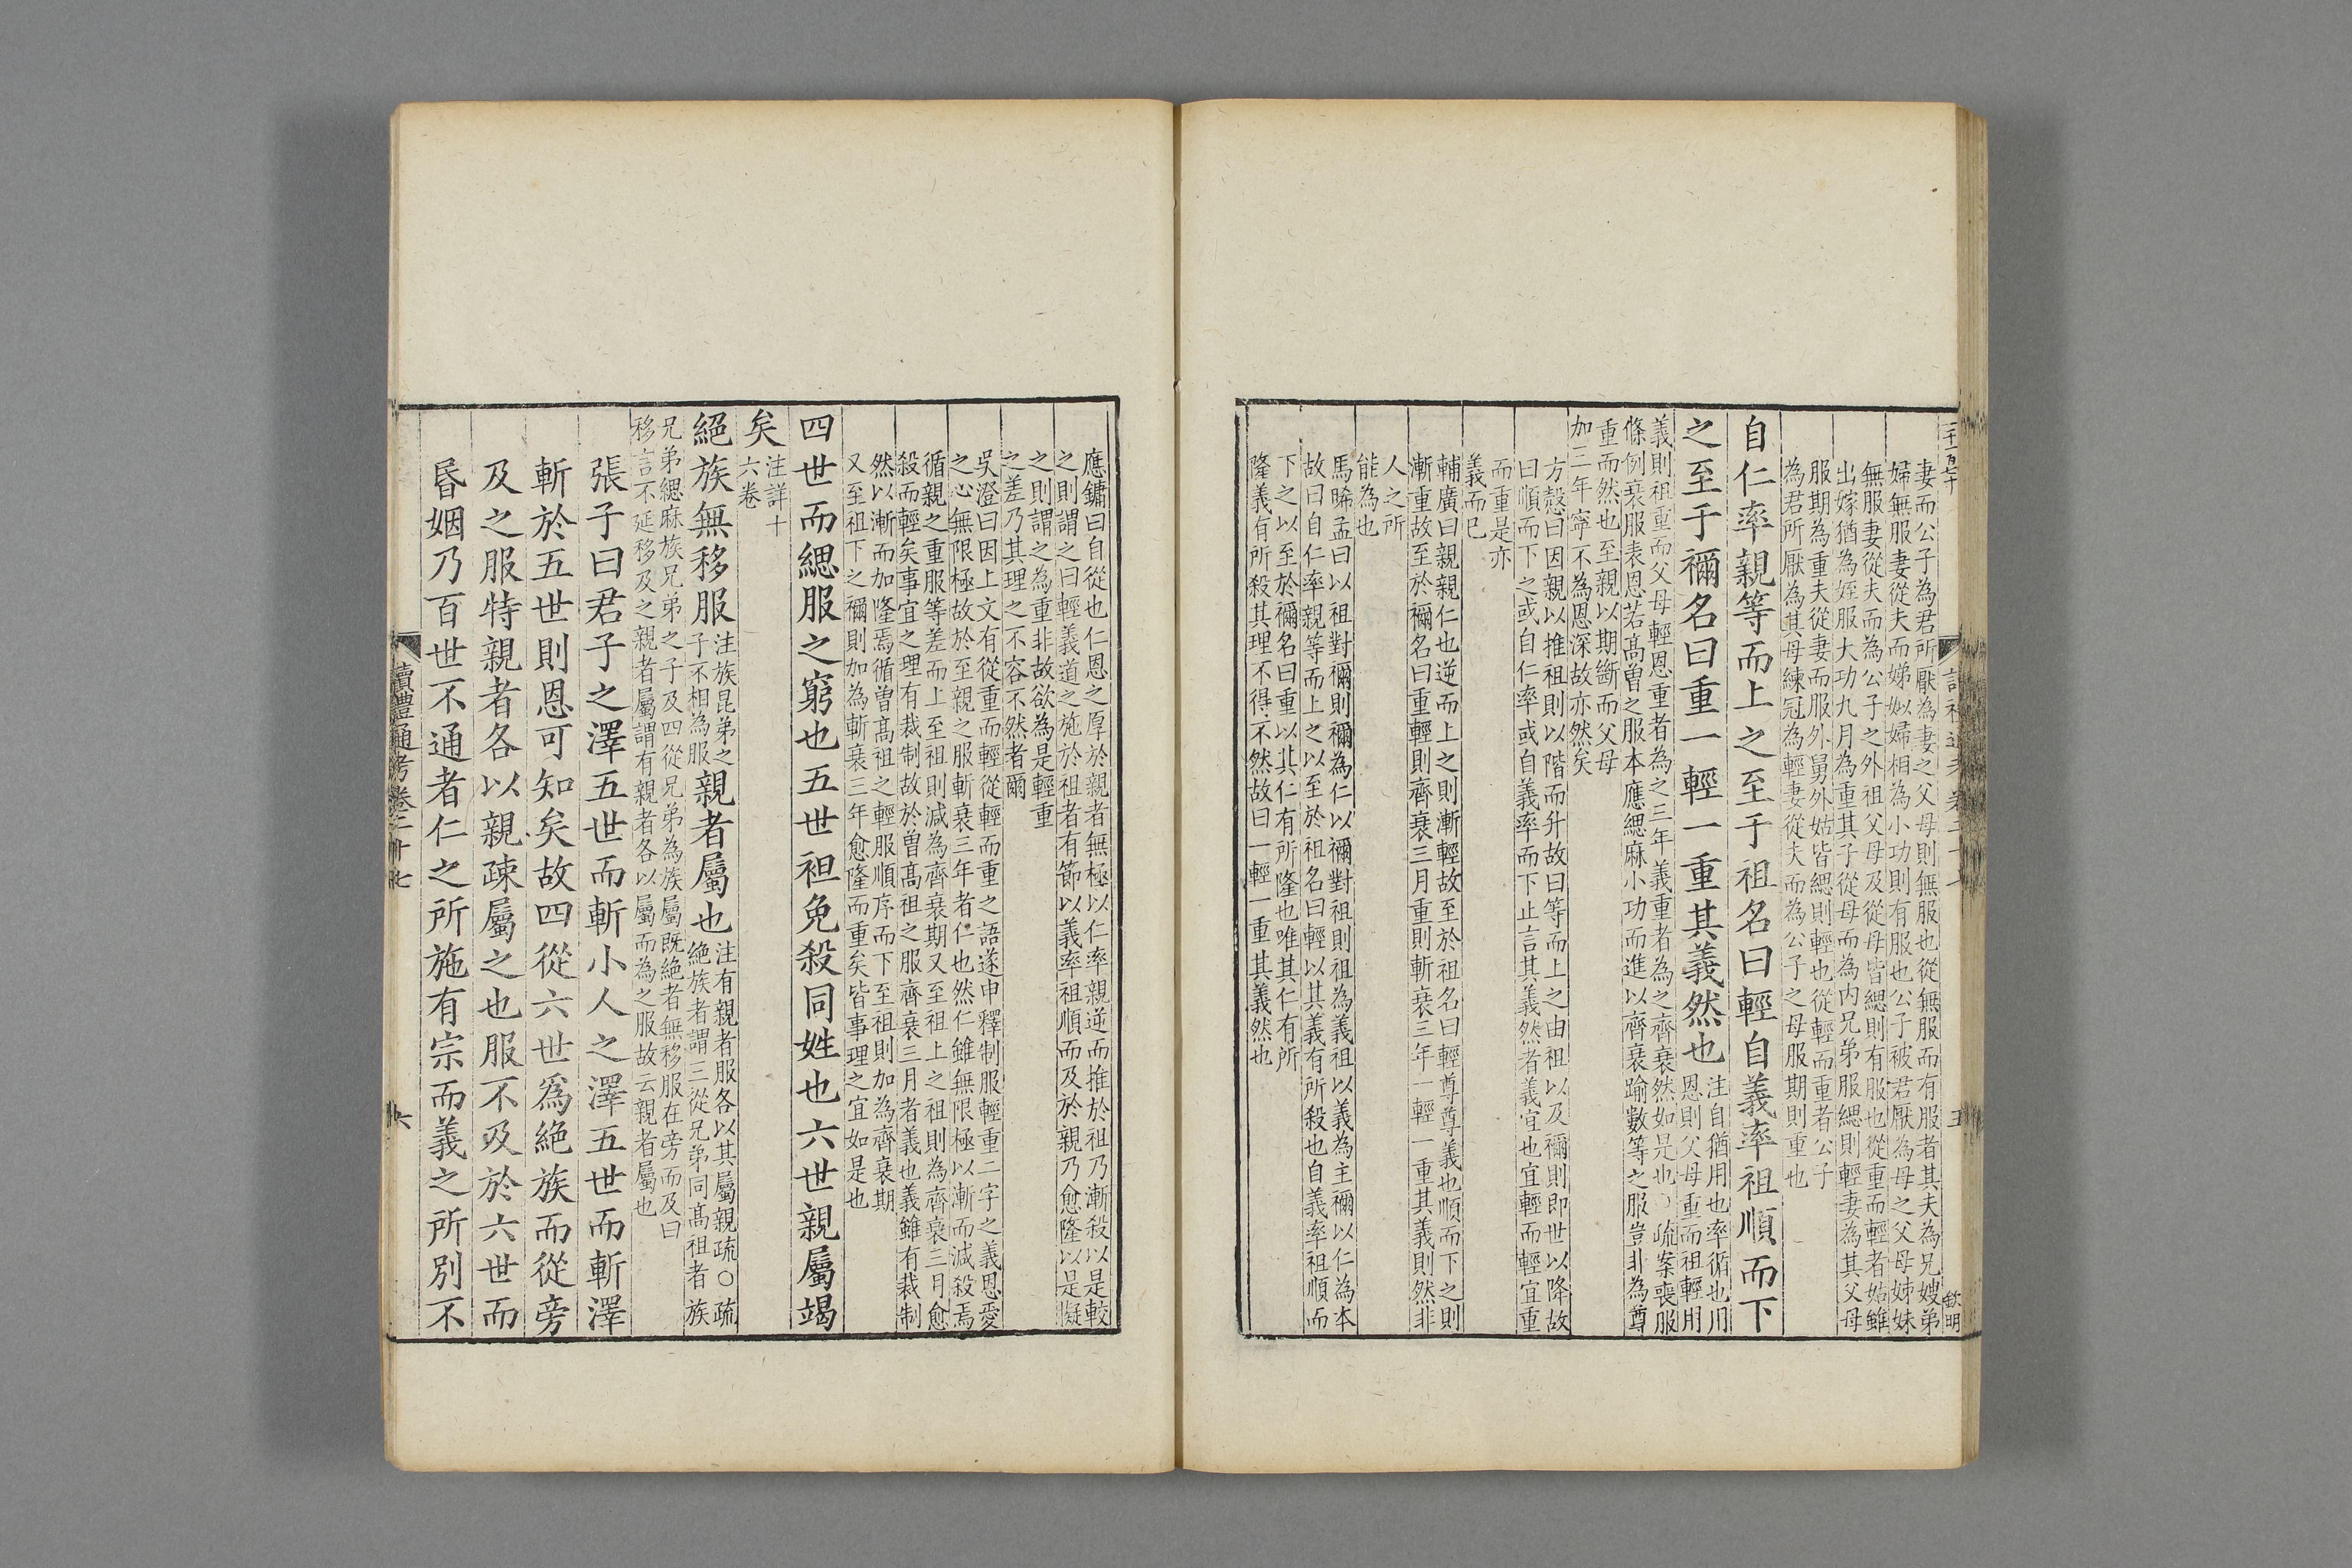 妻而公子為君所厭為妻之父母則無服也從無服而有服者其夫為兄嫂弟
婦無服妻從夫而娣姒婦相為小功則有服也公子被君厭為母之父母姊妹
無服妻從夫而為公子之外祖父母及從母皆緦則有服也從重而輕者姑雖
出嫁猶為姪服大功九月為重其子從母而為內兄弟服緦則輕妻為其父母
服期為重夫從妻而服外舅外姑皆緦則輕也從輕而重者公子
為君所厭為其母練冠為輕妻從夫而為公子之母服期則重也
自仁率親等而上之至于祖名曰輕自義率祖順而下
之至于禰名曰重一輕一重其義然也
注自猶用也率循也用
恩則父母重而祖輕用
義則祖重而父母輕恩重者為之三年義重者為之齊衰然如是也○疏案喪服
條例衰服表恩若髙曽之服本應緦麻小功而進以齊衰踰數等之服豈非為尊
重而然也至親以期斷而父母
加三年寧不為恩深故亦然矣
方慤曰因親以推祖則以階而升故曰等而上之由祖以及禰則即世以降故
曰順而下之或自仁率或自義率而下止言其義然者義宜也宜輕而輕宜重
而重是亦
義而已
輔廣曰親親仁也逆而上之則漸輕故至於祖名曰輕尊尊義也順而下之則
漸重故至於禰名曰重輕則齊衰三月重則斬衰三年一輕一重其義則然非
人之所
能為也
馬晞孟曰以祖對禰則禰為仁以禰對祖則祖為義祖以義為主禰以仁為本
故曰自仁率親等而上之以至於祖名曰輕以其義有所殺也自義率祖順而
下之以至於禰名曰重以其仁有所隆也唯其仁有所
隆義有所殺其理不得不然故曰一輕一重其義然也
應鏞曰自從也仁恩之厚於親者無極以仁率親逆而推於祖乃漸殺以是較
之則謂之曰輕義道之施於祖者有節以義率祖順而及於親乃愈隆以是擬
之則謂之為重非故欲為是輕重
之差乃其理之不容不然者爾
吳澄曰因上文有從重而輕從輕而重之語遂申釋制服輕重二字之義恩愛
之心無限極故於至親之服斬衰三年者仁也然仁雖無限極以漸而減殺焉
循親之重服等差而上至祖則減為齊衰期又至祖上之祖則為齊衰三月愈
殺而輕矣事宜之理有裁制故於曽髙祖之服齊衰三月者義也義雖有裁制
然以漸而加隆焉循曽髙祖之輕服順序而下至祖則加為齊衰期
又至祖下之禰則加為斬衰三年愈隆而重矣皆事理之宜如是也
四世而緦服之窮也五世袒免殺同姓也六世親屬竭
矣
注詳十
六卷
絕族無移服
注族昆弟之
子不相為服
親者屬也
注有親者服各以其屬親疏○疏
絕族者謂三從兄弟同髙祖者族
兄弟緦麻族兄弟之子及四從兄弟為族屬既絕者無移服在旁而及曰
移言不延移及之親者屬謂有親者各以屬而為之服故云親者屬也
張子曰君子之澤五世而斬小人之澤五世而斬澤
斬於五世則恩可知矣故四從六世爲絕族而從旁
及之服特親者各以親疎屬之也服不及於六世而
昏姻乃百世不通者仁之所施有宗而義之所別不
讀禮通考卷三十七
六